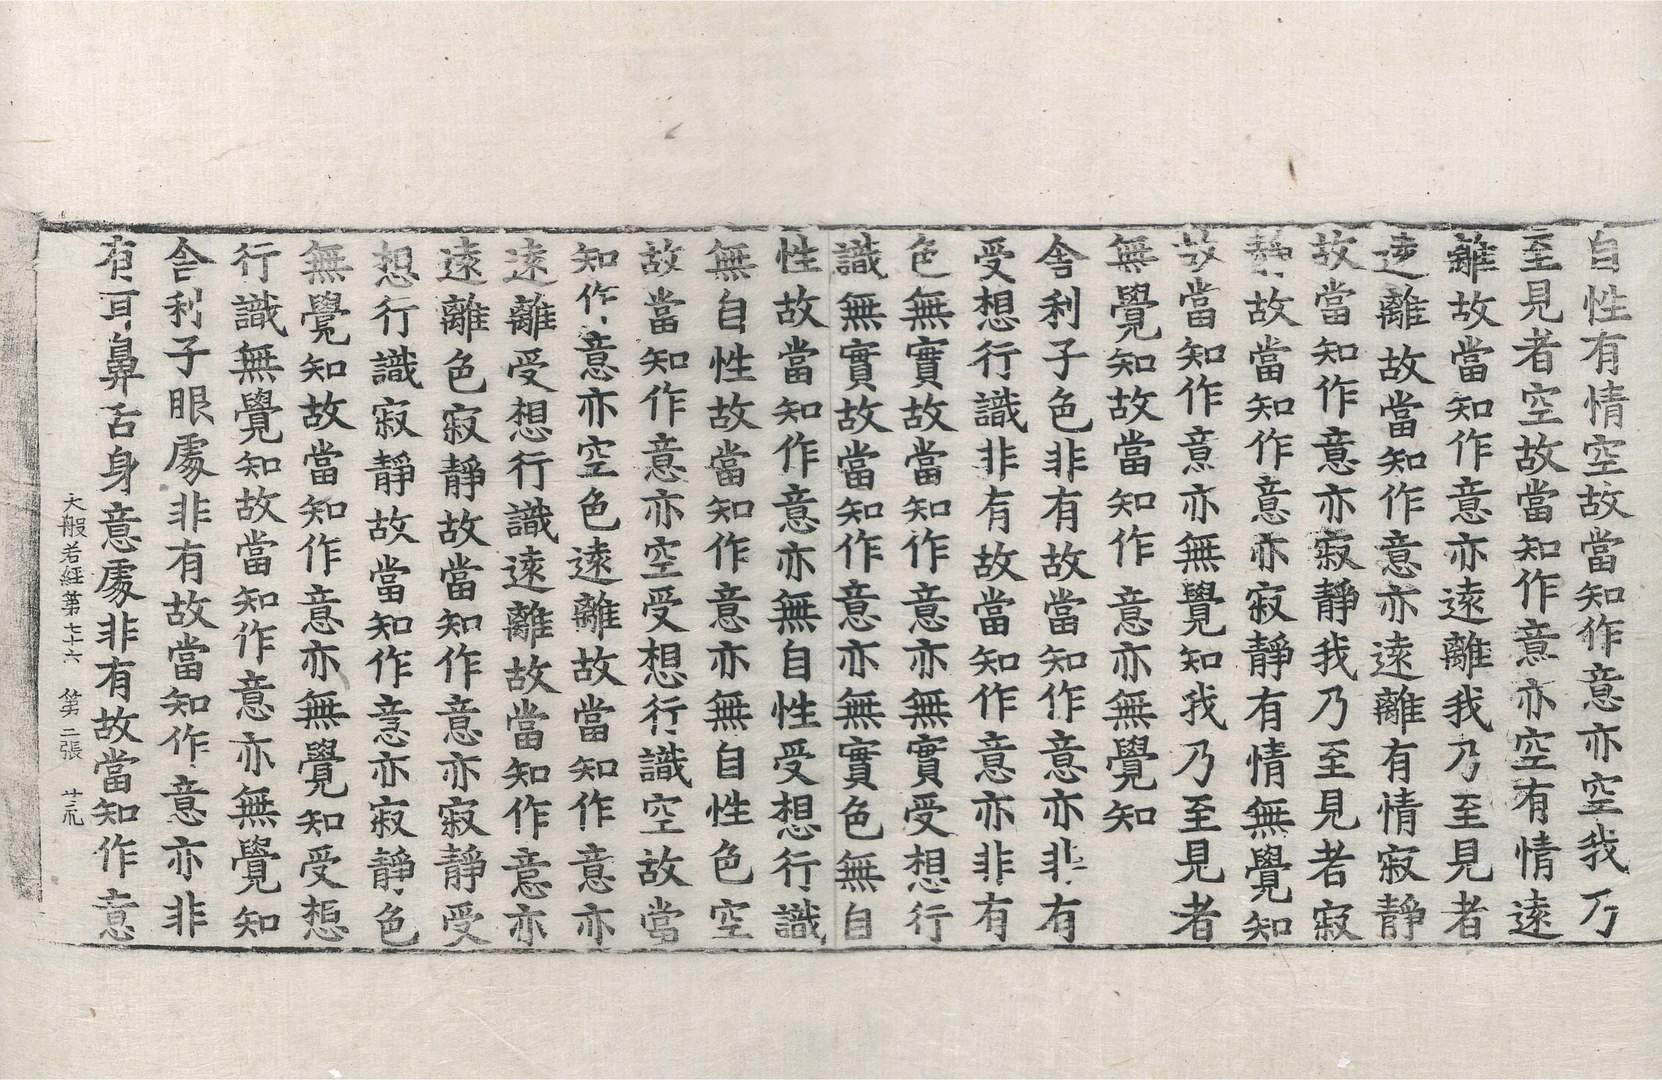 自性有情空故當知作意亦空我乃
至見者空故當知作意亦空有情遠
離故當知作意亦遠離我乃至見者
遠離故當知作意亦遠離有情寂靜
故當知作意亦寂靜我乃至見者寂
靜故當知作意亦寂靜有情無覺知
故當知作意亦無覺知我乃至見者
無覺知故當知作意亦無覺知
舍利子色非有故當知作意亦非有
受想行識非有故當知作意亦非有
色無實故當知作意亦無實受想行
識無實故當知作意亦無實色無自
性故當知作意亦無自性受想行識
無自性故當知作意亦無自性色空
故當知作意亦空受想行識空故當
知作意亦空色遠離故當知作意亦
遠離受想行識遠離故當知作意亦
遠離色寂靜故當知作意亦寂靜受
想行識寂靜故當知作意亦寂靜色
無覺知故當知作意亦無覺知受想
行識無覺知故當知作意亦無覺知
舍利子眼處非有故當知作意亦非
有耳鼻舌身意處非有故當知作意
大般若經第七十六 第二張 荒